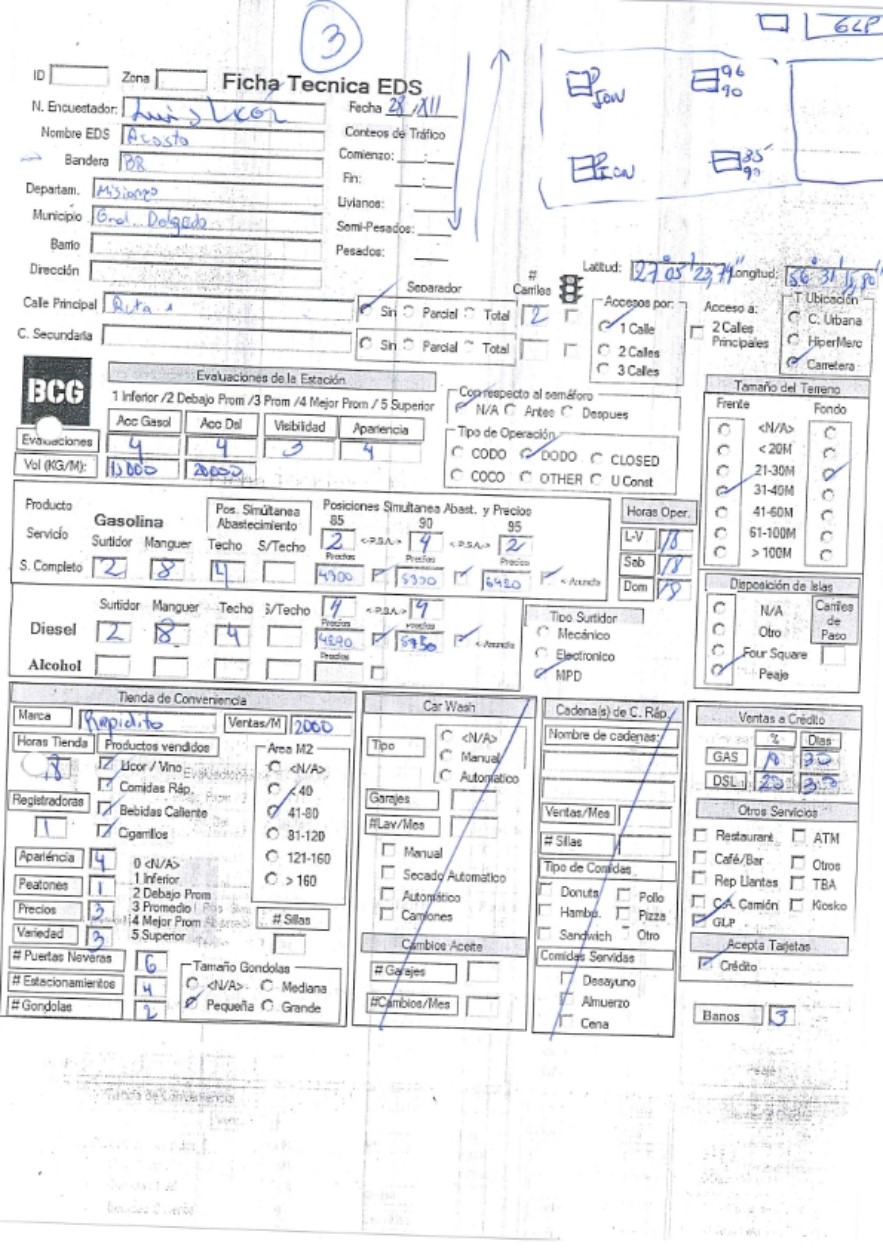 3
GLP
96
90
85
90
ID Zona Ficha Tecnica EDS
N. Encuestador: Luis
Fecha 28 / XII
Nombre EDS Acosta
Conteos de Tráfico
Bandera BR
Comienzo: __ : __
Fin: __ : __
Departam. Misiones
Livianos:
Municipio Gral. Delgado
Semi-Pesados:
Barrio
Pesados:
Dirección
Latitud: 27° 05' 23,74" Longitud: 56° 31'
Calle Principal Ruta 1
Separador
Sin Parcial Total
# Carriles
2
C. Secundaria
Sin Parcial Total
Accesos por:
1 Calle
2 Calles
3 Calles
Acceso a:
2 Calles Principales
T Ubicación
C. Urbana
HiperMerc
Carretera
BCG
Evaluaciones de la Estación
1 Inferior /2 Debajo Prom /3 Prom /4 Mejor Prom / 5 Superior
Acc Gasol Acc Dsl Visibilidad Apariencia
Evaluaciones 4 4 3 4
Vol (KG/M): 20000
Con respecto al semáforo
N/A Antes Despues
Tipo de Operación
CODO DODO CLOSED
COCO OTHER U Const
Tamaño del Terreno
Frente Fondo
<N/A>
< 20M
21-30M
31-40M
41-60M
61-100M
> 100M
Producto
Servicio
Gasolina
Pos. Simúltanea Abastecimiento
Posiciones Simultanea Abast. y Precios
85 90 95
Surtidor Manguer Techo S/Techo
2 <-P.S.A.-> 4 <-P.S.A.-> 2
Precios Precios Precios
S. Completo 2 8 4
4900 6420 <- Anuncia
Horas Oper.
L-V 18
Sab 18
Dom 18
Surtidor Manguer Techo S/Techo
4 <-P.S.A.-> 4
Diesel 2 8 4
Precios Precios
4290 5750 <- Anuncia
Precios
Alcohol
Tipo Surtidor
Mecánico
Electronico
MPD
Disposición de Islas
N/A
Otro
Four Square
Peaje
Carriles de Paso
Tienda de Conveniencia
Marca Rapidito Ventas/M 2000
Horas Tienda Productos vendidos
18
Licor / Vino
Comidas Ráp.
Bebidas Caliente
Cigarrillos
Registradoras
1
Area M2
<N/A>
< 40
41-80
81-120
121-160
> 160
Apariéncia 4
Peatones 1
Precios 3
Variedad 3
0 <N/A>
1 Inferior
2 Debajo Prom
3 Promedio
4 Mejor Prom
5 Superior
# Sillas
# Puertas Neveras 6
# Estacionamientos 4
# Gondolas 2
Tamaño Gondolas
<N/A> Mediana
Pequeña Grande
Car Wash
Tipo
<N/A>
Manual
Automatico
Garajes
#Lav/Mes
Manual
Secado Automatico
Automático
Camiones
Cambios Aceite
# Garajes
#Cambios/Mes
Cadena(s) de C. Ráp.
Nombre de cadenas:
Ventas/Mes
# Sillas
Tipo de Comidas
Donuts Pollo
Hambu. Pizza
Sandwich Otro
Comidas Servidas
Desayuno
Almuerzo
Cena
Ventas a Crédito
% Dias
GAS 10 30
DSL 20 30
Otros Servicios
Restaurant ATM
Café/Bar Otros
Rep Llantas TBA
C.A. Camión Kiosko
GLP
Acepta Tarjetas
Crédito
Banos 3
Tienda de Conveniencia